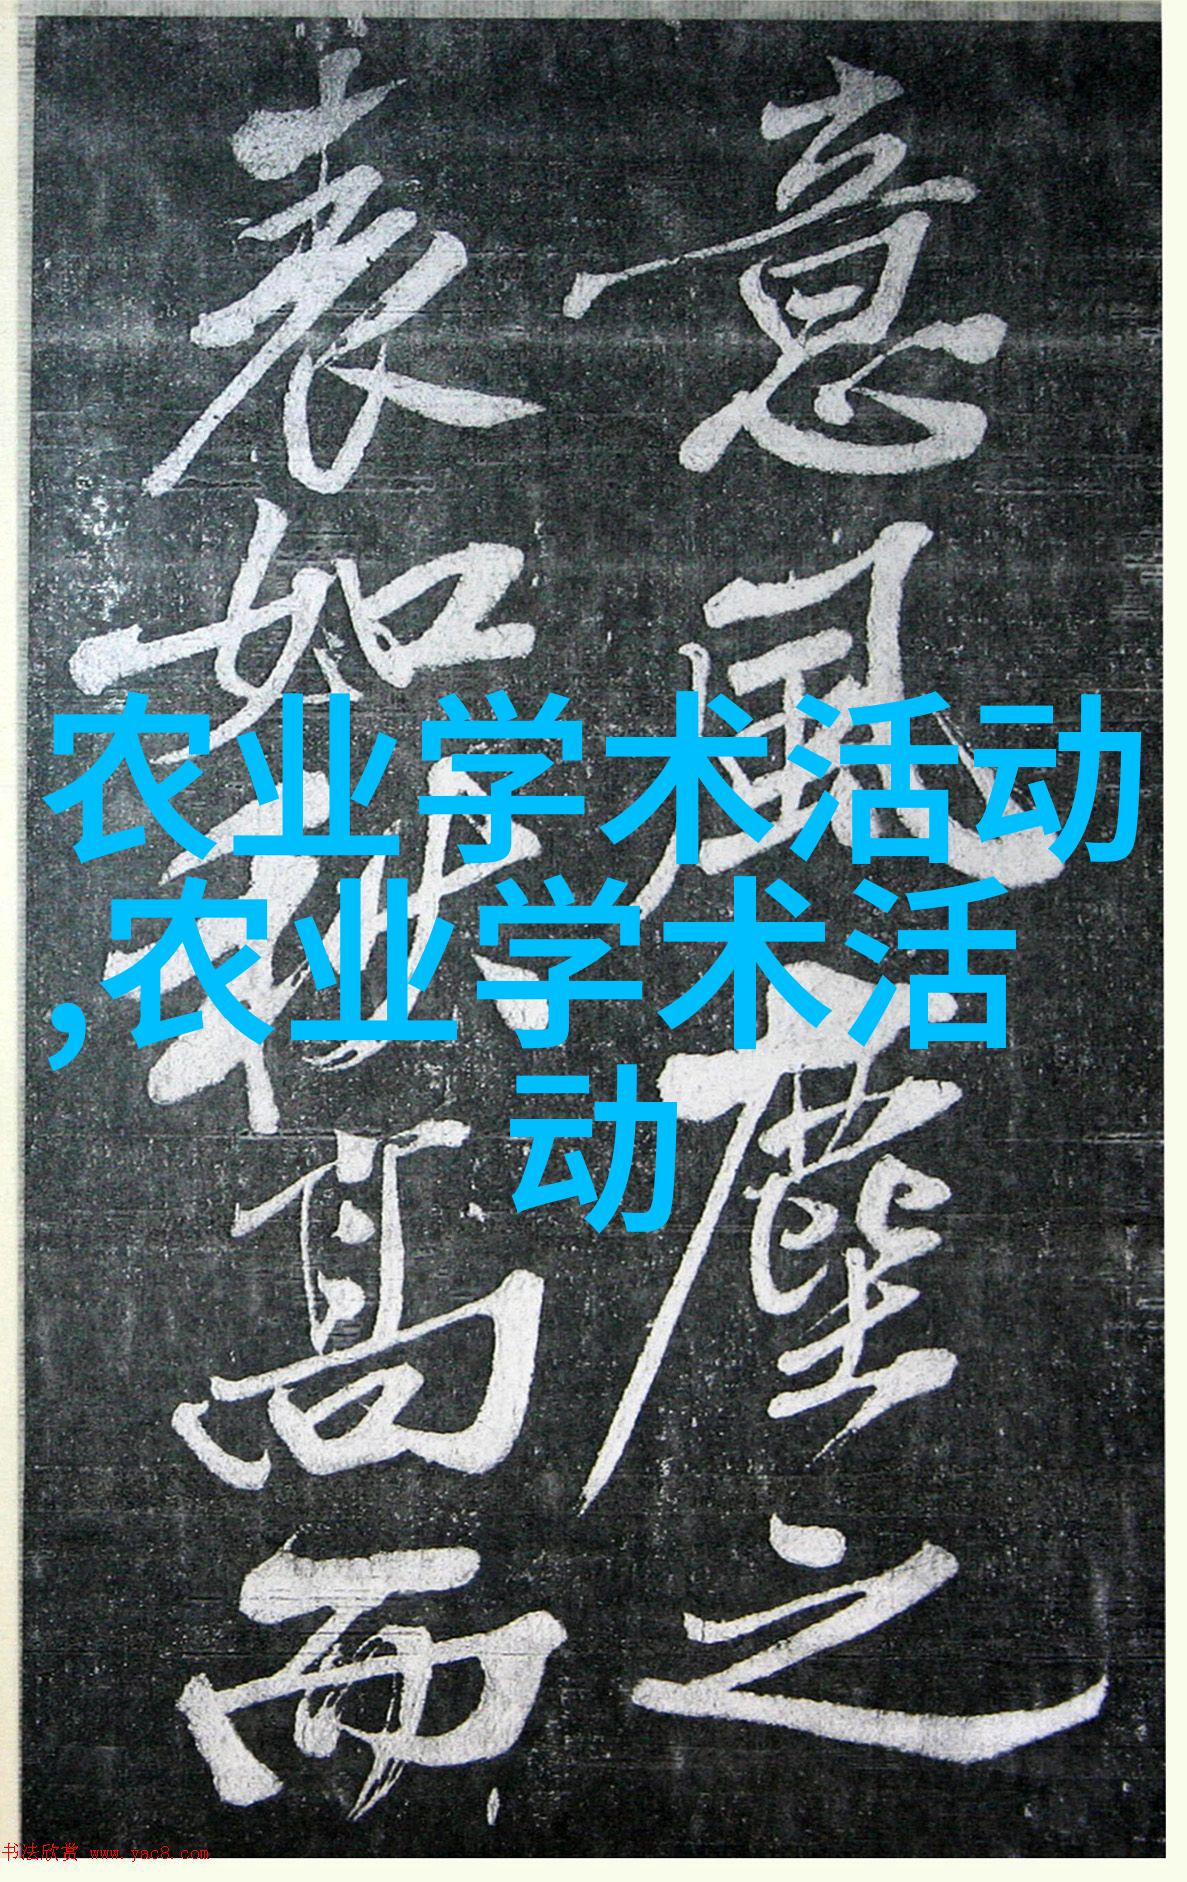 意風塵之
表如秋高而
农业学术活动
,农业学术活
动
书法欣赏 www.yac8.com